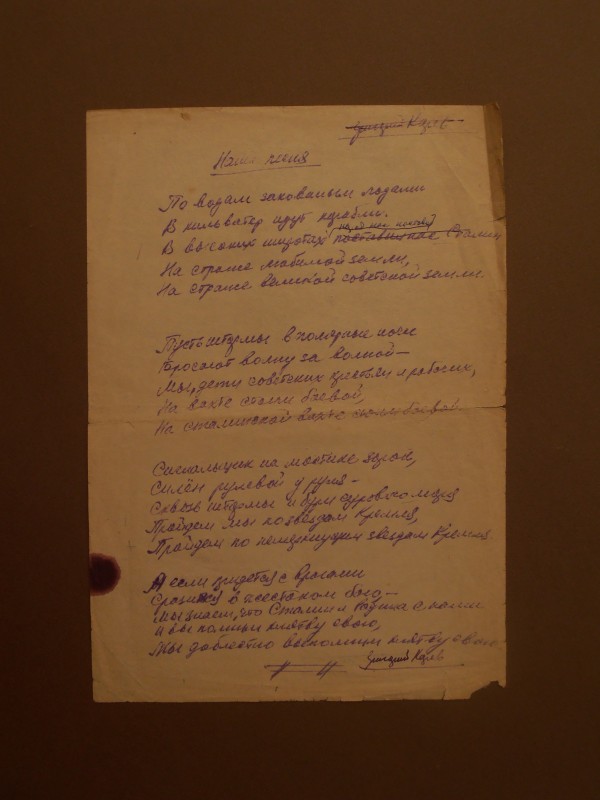 Наша песня
По водам закованым льдами
В кильватер идут корабли.
В высоких широтах поставил нас Сталин
На страже любимой земли,
На страже великой советской земли.
Пусть штормы в полярные ночи
Бросают волну за волной —
Мы, дети советских крестьян и рабочих,
На вахте стоим боевой,
На сталинской вахте стоим боевой
Сигнальщик на мостике зорок,
Силён рулевой у руля —
Сквозь штормы и бури сурового моря
Пройдем мы по звездам Кремля,
Пройдем по немеркнущим звёздам Кремля.
А если придется с врагами
Сразиться в жестоком бою —
Мы знаем, что Сталин и Родина с нами
И выполним клятву свою,
Мы доблестно выполним клятву свою